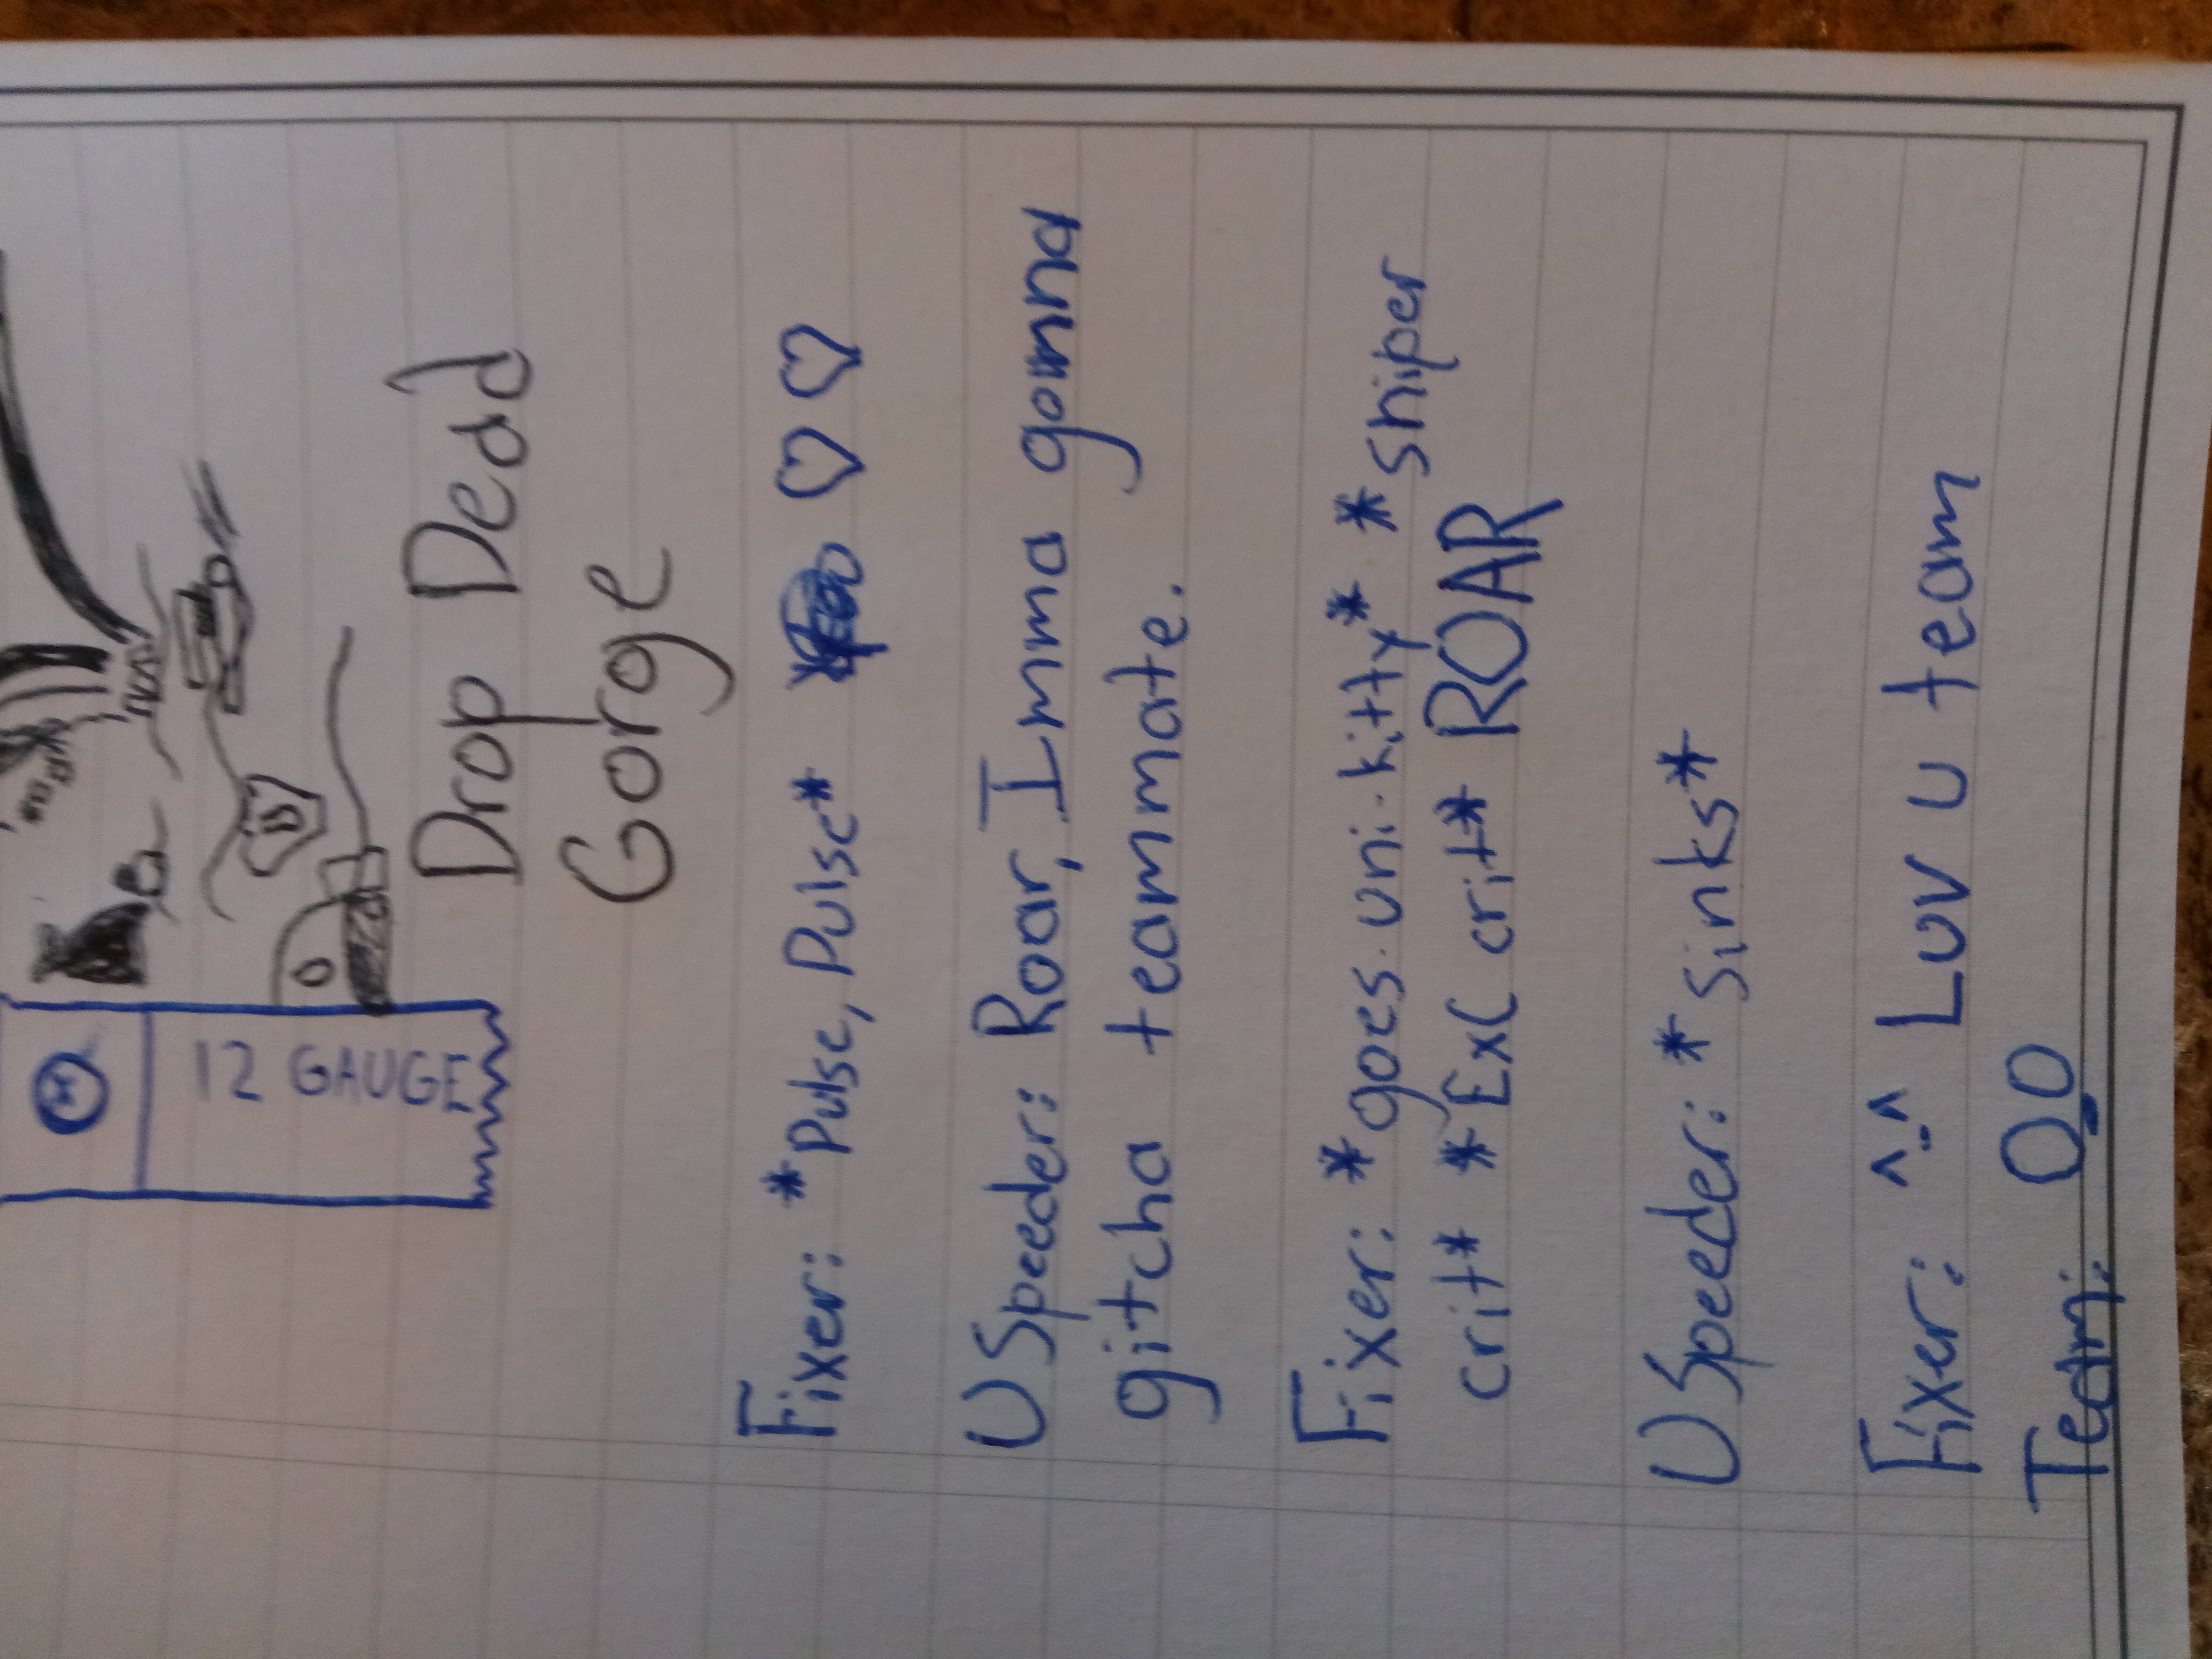 12 GAUGE
Drop Dead
Gorge
Fixer: *Pulse, Pulse* ♡ ♡
U Speeder: Roar, Imma gonna
gitcha teammate.
Fixer: *goes uni-kitty* *sniper
crit* *Exl crit* ROAR
U Speeder: *sinks*
Fixer: ^-^ Luv u team
Team: O_O